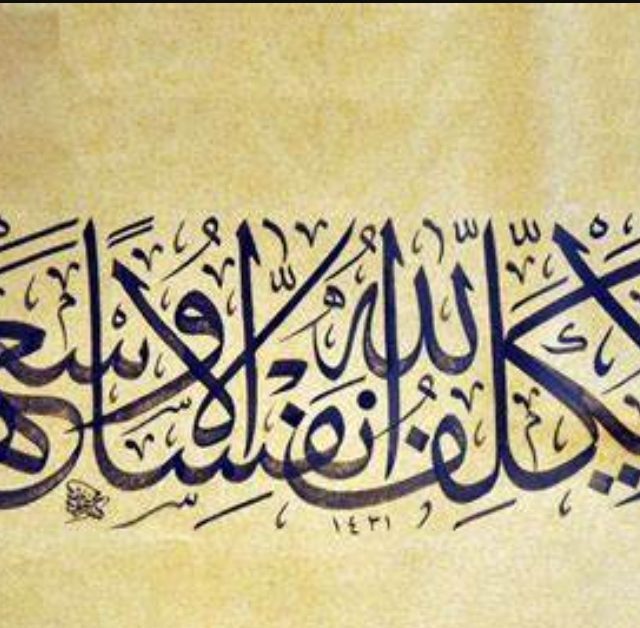 لا يكلف الله نفسا إلا وسعها
١٤٣١